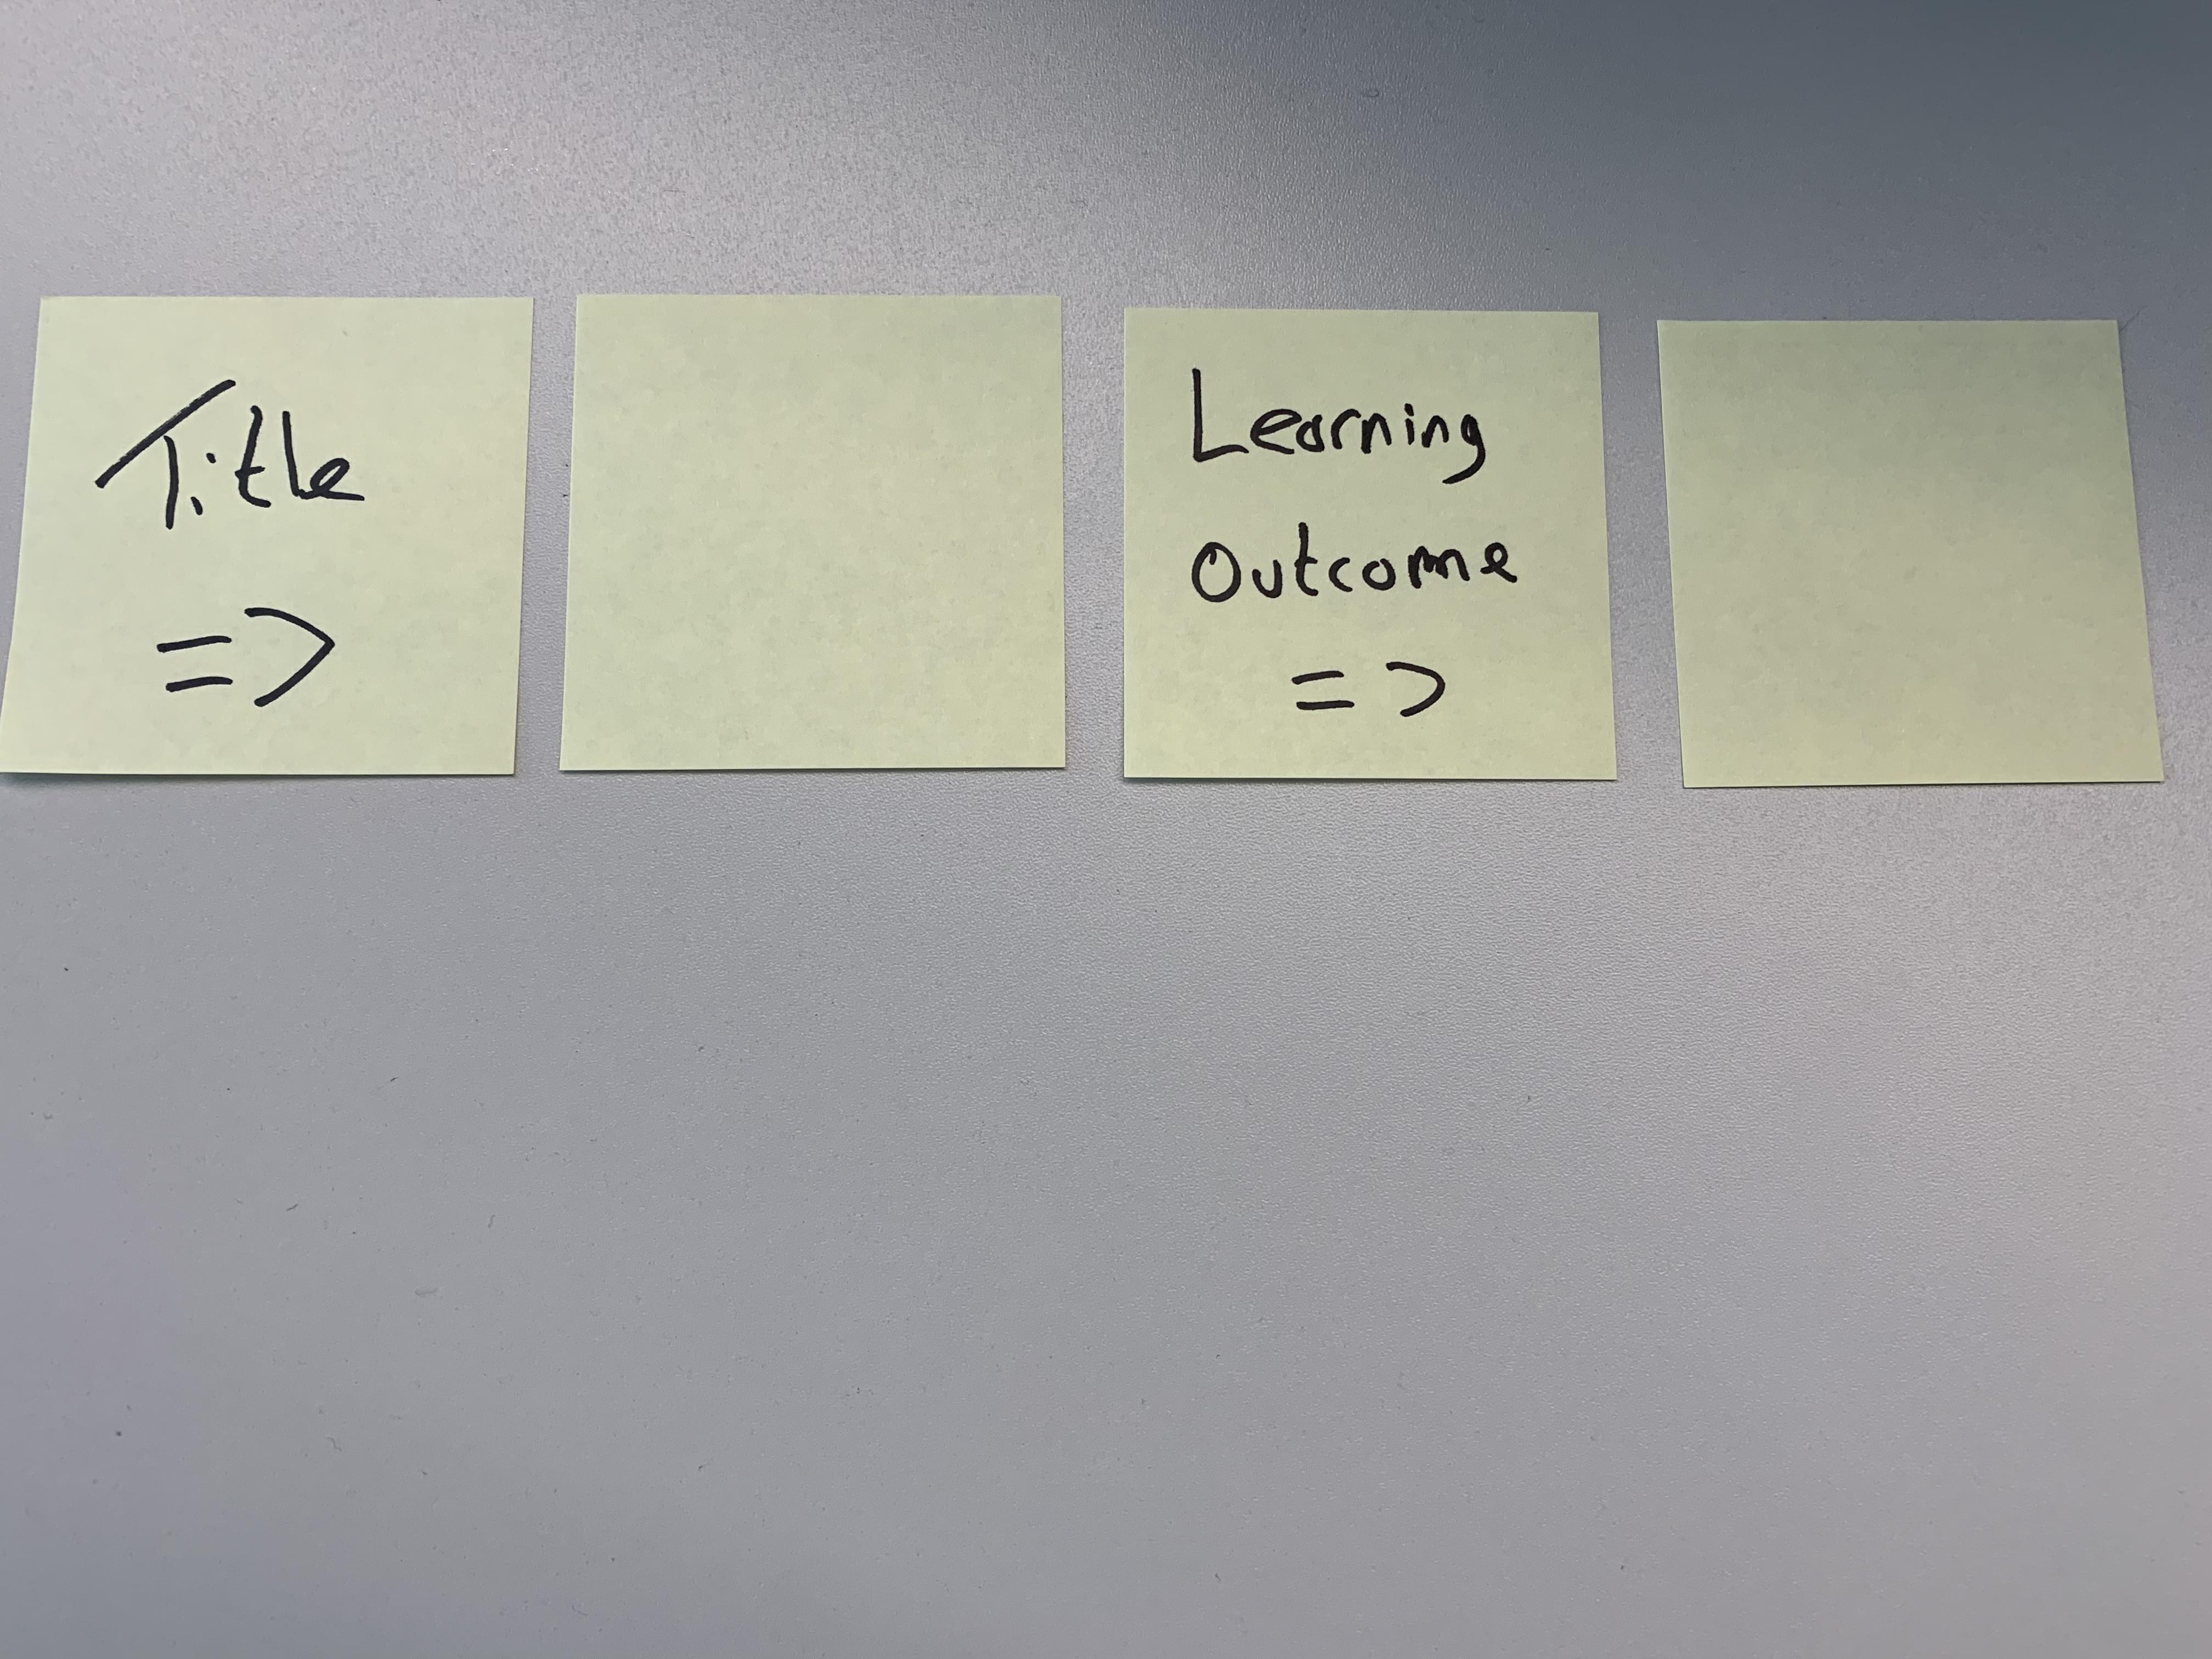 Title
=>
Learning
Outcome
=>